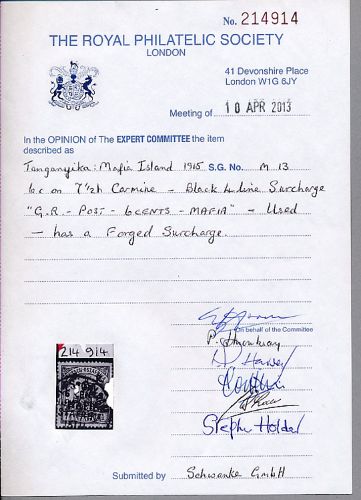 No. 214914
THE ROYAL PHILATELIC SOCIETY
LONDON
41 Devonshire Place
London W1G 6JY
Meeting of 10 APR 2013
In the OPINION of The EXPERT COMMITTEE the item
described as
Tanganyika: Mafia Island 1915 S.G. No. M 13
6c on 7½h Carmine - Black 4 line Surcharge
"G.R - POST - 6CENTS - MAFIA" - Used
- has a Forged Surcharge.
On behalf of the Committee
214 914
Stephen Holder
Submitted by Schwanke GmbH